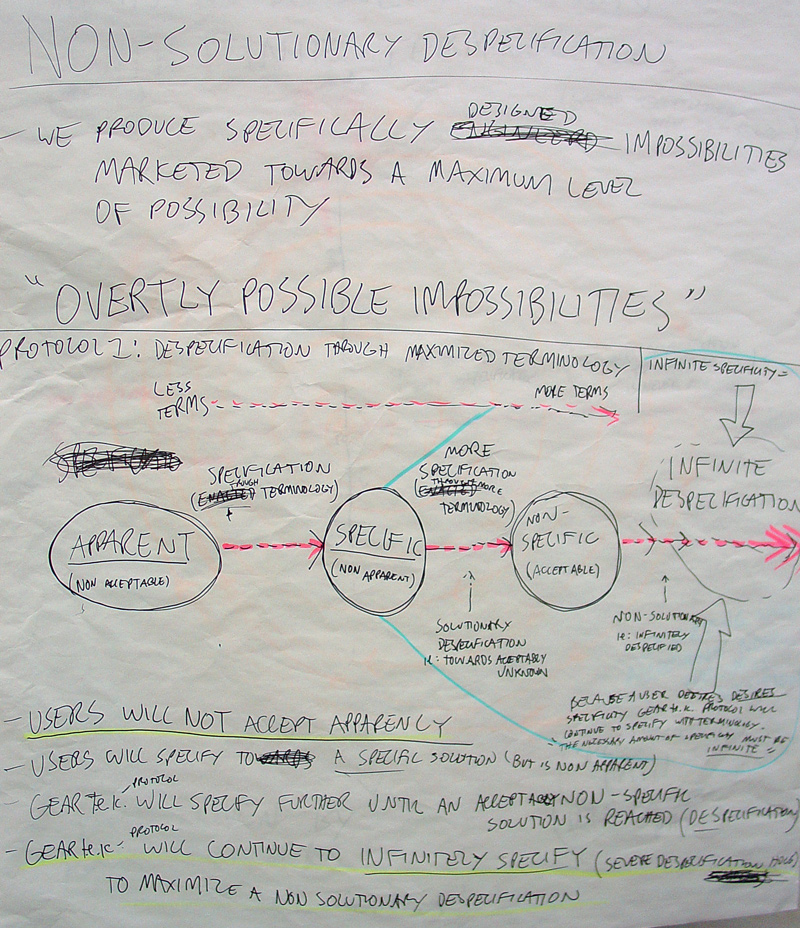 NON-SOLUTIONARY DESPECIFICATION
- WE PRODUCE SPECIFICALLY DESIGNED IMPOSSIBILITIES
MARKETED TOWARDS A MAXIMUM LEVEL
OF POSSIBILITY
"OVERTLY POSSIBLE IMPOSSIBILITIES"
PROTOCOL 1: DESPECIFICATION THROUGH MAXIMIZED TERMINOLOGY
INFINITE SPECIFICITY =
LESS
TERMS
MORE TERMS
SPECIFICATION
(THOUGH TERMINOLOGY)
MORE
SPECIFICATION
(THROUGH MORE
TERMINOLOGY)
INFINITE
DESPECIFICATION
APPARENT
(NON ACCEPTABLE)
SPECIFIC
(NON APPARENT)
NON-
SPECIFIC
(ACCEPTABLE)
SOLUTIONARY
DESPECIFICATION
ie: TOWARDS ACCEPTABLY
UNKNOWN
NON-SOLUTIONARY
ie: INFINITELY
DESPECIFIED
BECAUSE A USER DESIRES
SPECIFICITY GEARte.k. PROTOCOL WILL
CONTINUE TO SPECIFY WITH TERMINOLOGY.
"THE NECESSARY AMOUNT OF SPECIFICITY MUST BE
INFINITE"
- USERS WILL NOT ACCEPT APPARENCY
- USERS WILL SPECIFY TO A SPECIFIC SOLUTION (BUT IS NON APPARENT)
- GEARte.k. PROTOCOL WILL SPECIFY FURTHER UNTIL AN ACCEPTABLY NON-SPECIFIC
SOLUTION IS REACHED (DESPECIFICATION)
- GEARte.k- PROTOCOL WILL CONTINUE TO INFINITELY SPECIFY (SEVERE DESPECIFICATION
TO MAXIMIZE A NON SOLUTIONARY DESPECIFICATION